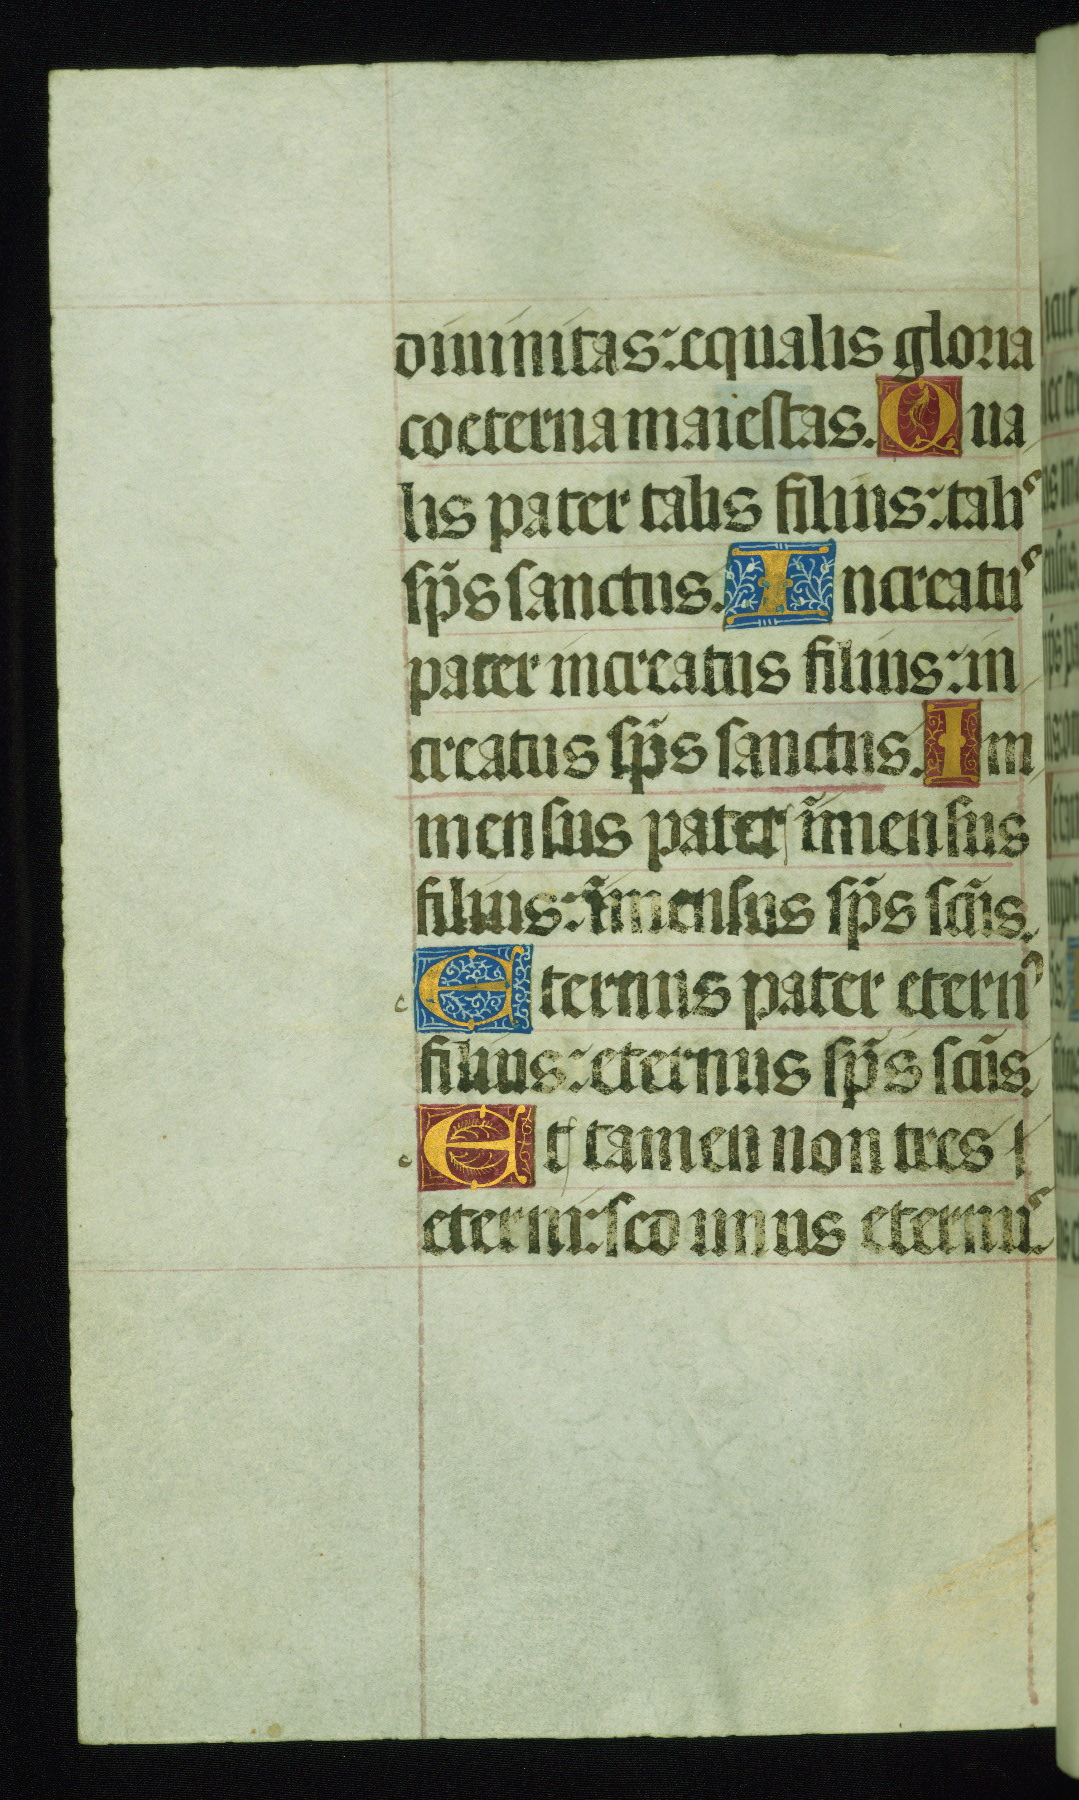 diuinitas: equalis gloria
coeterna maiestas. Qua
lis pater talis filius: talis
sp̄s sanctus. Increatus
pater increatus filius: in
creatus sp̄s sanctus. Im
mensus pater īmensus
filius: īmensus sp̄s sc̄us.
Eternus pater eternus
filius: eternus sp̄s sc̄us.
Et tamen non tres
eterni: sed unus eternus.